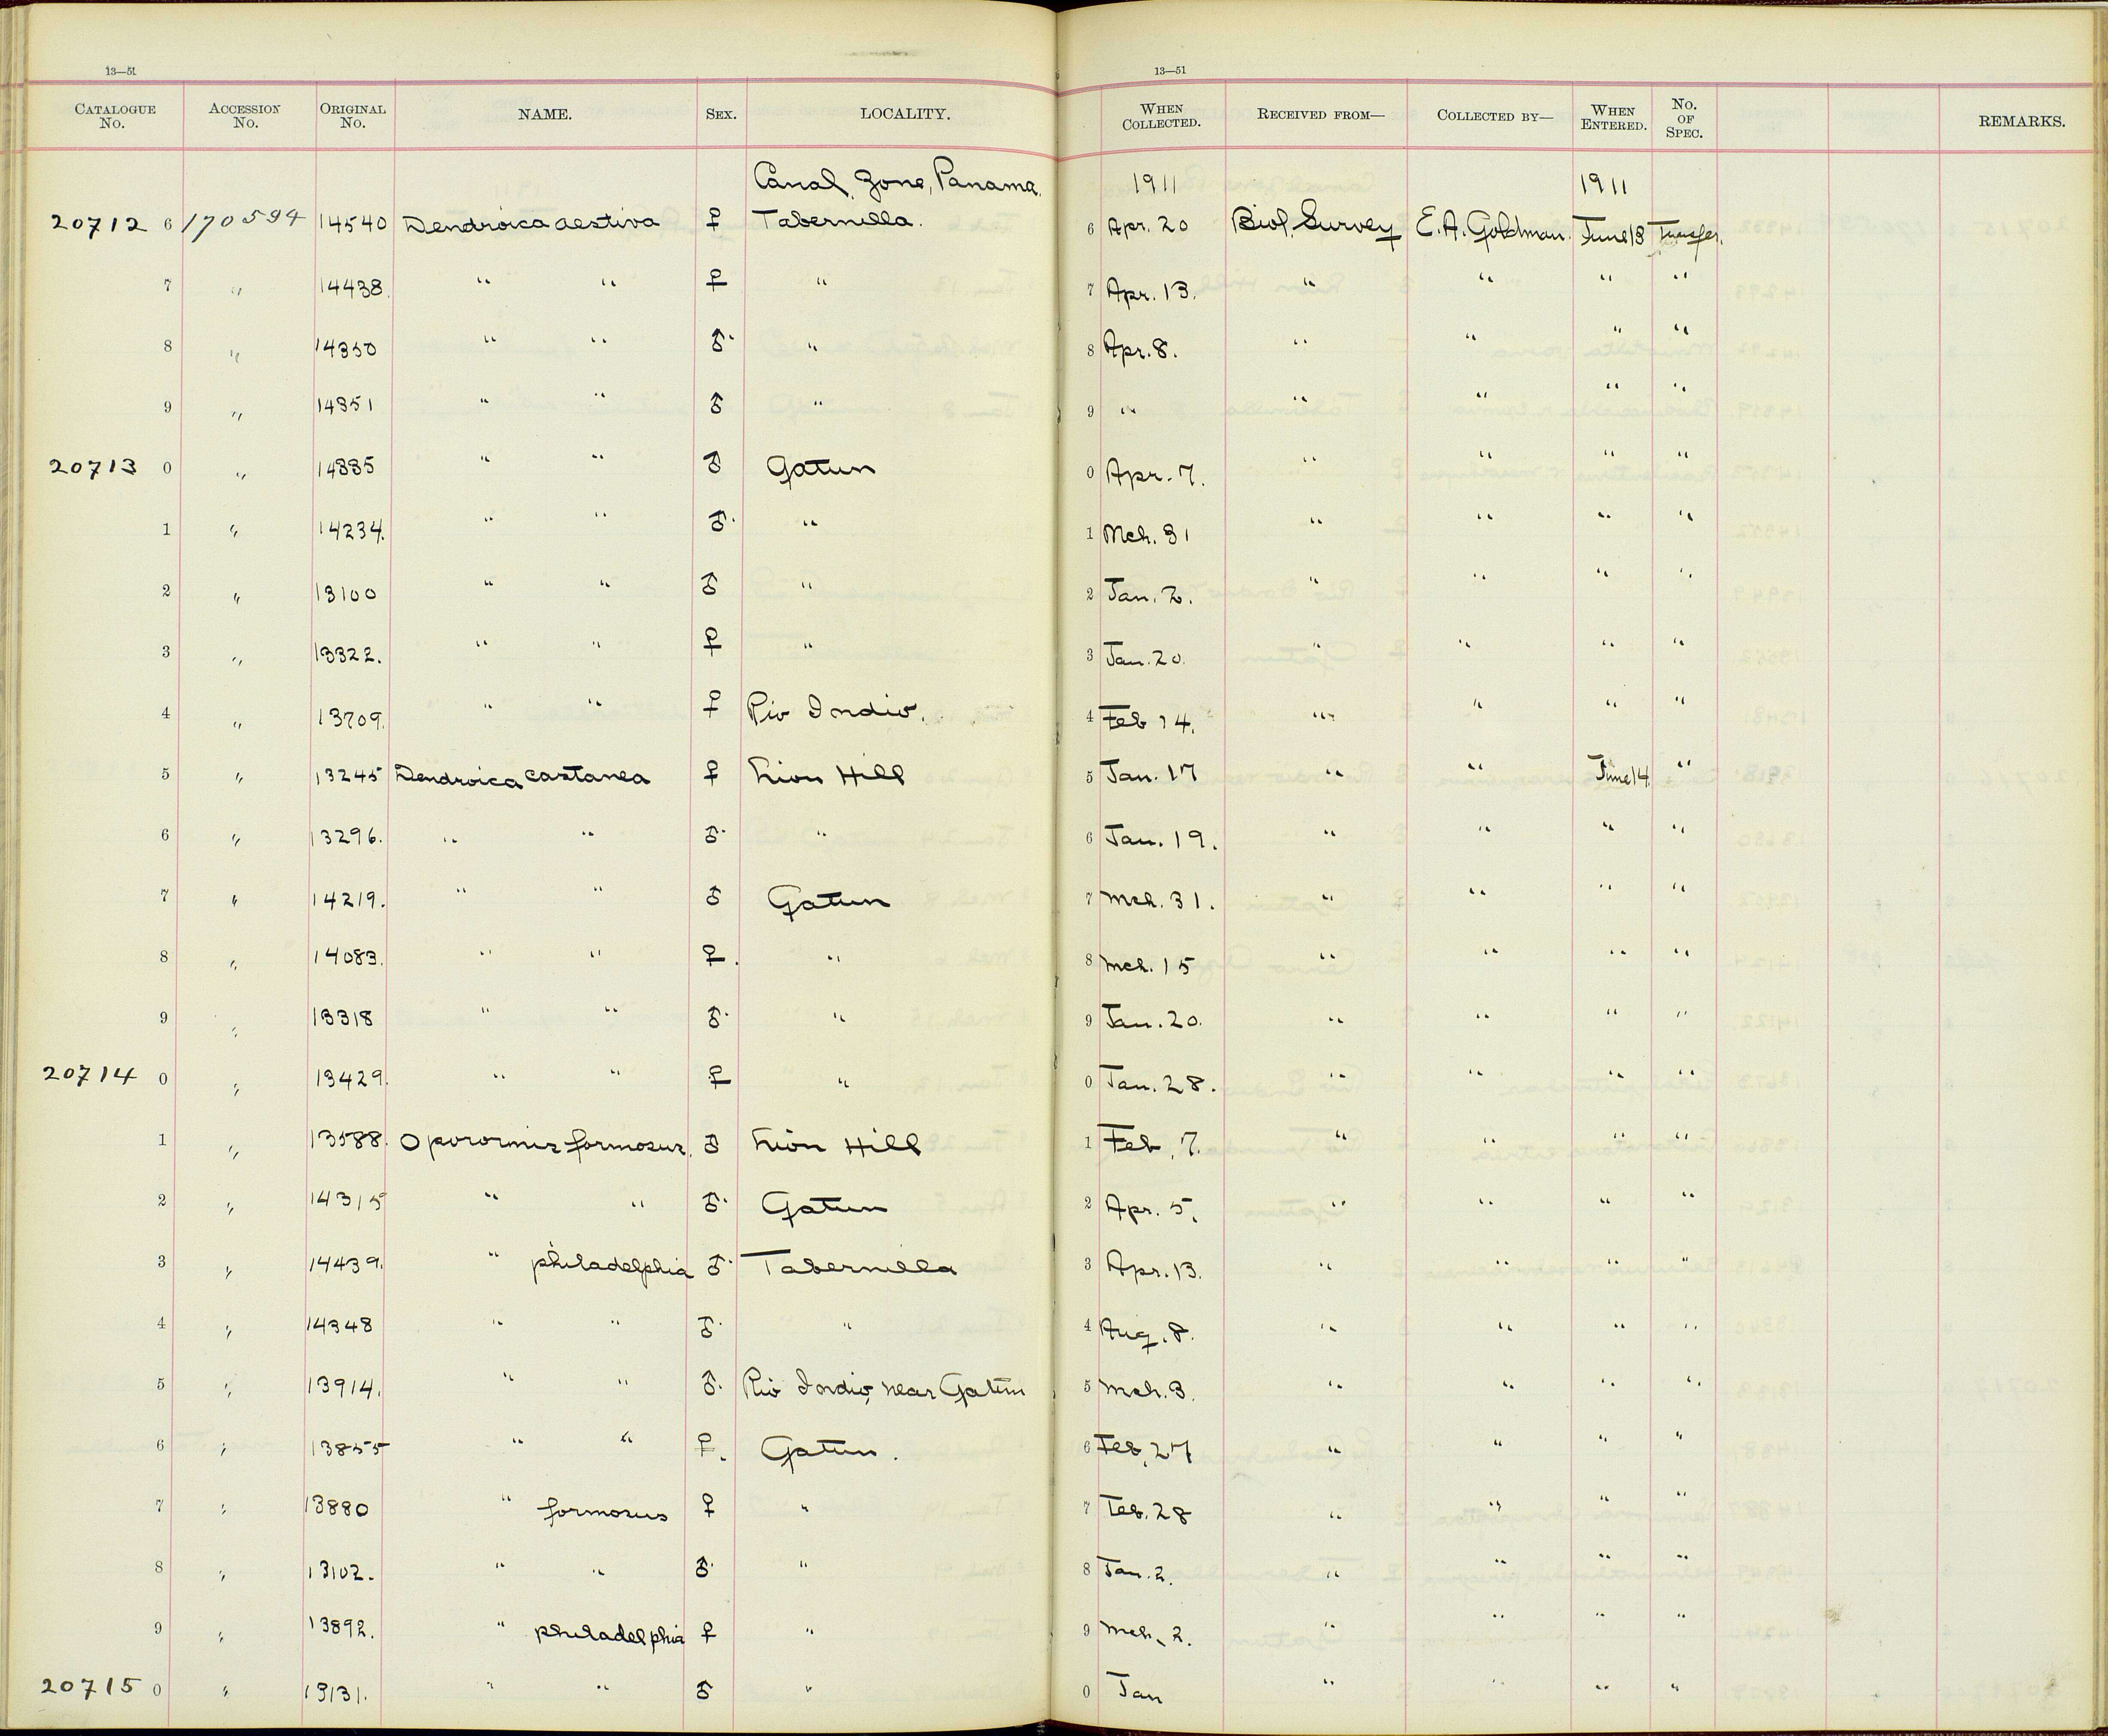 13—51 13—51
CATALOGUE No. ACCESSION No. ORIGINAL No. NAME. SEX. LOCALITY. WHEN COLLECTED. RECEIVED FROM— COLLECTED BY— WHEN ENTERED. No. OF SPEC. REMARKS.
Canal Zone, Panama. 1911 1911
20712 6 170594 14540 Dendroica aestiva ♀ Tabernilla. 6 Apr. 20 Biol. Survey E. A. Goldman. June 13 Transfer.
7 " 14438. " " ♀ " 7 Apr. 13. " " " "
8 " 14350 " " ♂. " 8 Apr. 8. " " " "
9 " 14351 " " ♂ " 9 " " " " "
20713 0 " 14335 " " ♂ Gatun 0 Apr. 7. " " " "
1 " 14234. " " ♂. " 1 Mch. 31 " " " "
2 " 13100 " " ♂ " 2 Jan. 2. " " " "
3 " 13322. " " ♀ " 3 Jan. 20. " " " "
4 " 13709. " " ♀ Rio Indio. 4 Feb 14. " " " "
5 " 13245 Dendroica castanea ♀ Lion Hill 5 Jan. 17 " " June 14 "
6 " 13296. " " ♂. " 6 Jan. 19. " " " "
7 " 14219. " " ♂ Gatun 7 Mch. 31. " " " "
8 " 14083. " " ♀. " 8 Mch. 15 " " " "
9 " 13318 " " ♂. " 9 Jan. 20. " " " "
20714 0 " 13429. " " ♀ " 0 Jan. 28. " " " "
1 " 13588. Oporornis formosus. ♂ Lion Hill 1 Feb. 7. " " " "
2 " 14315 " " ♂. Gatun 2 Apr. 5. " " " "
3 " 14439. " philadelphia ♂. Tabernilla 3 Apr. 13. " " " "
4 " 14348 " " ♂. " 4 Aug. 8. " " " "
5 " 13914. " " ♂. Rio Indio, near Gatun 5 Mch. 3. " " " "
6 " 13855 " " ♀. Gatun. 6 Feb. 27 " " " "
7 " 13880 " formosus ♀ " 7 Feb. 28 " " " "
8 " 13102. " " ♂. " 8 Jan. 2. " " " "
9 " 13892. " philadelphia ♀ " 9 Mch. 2. " " " "
20715 0 " 13131. " " ♂ " 0 Jan " " " "